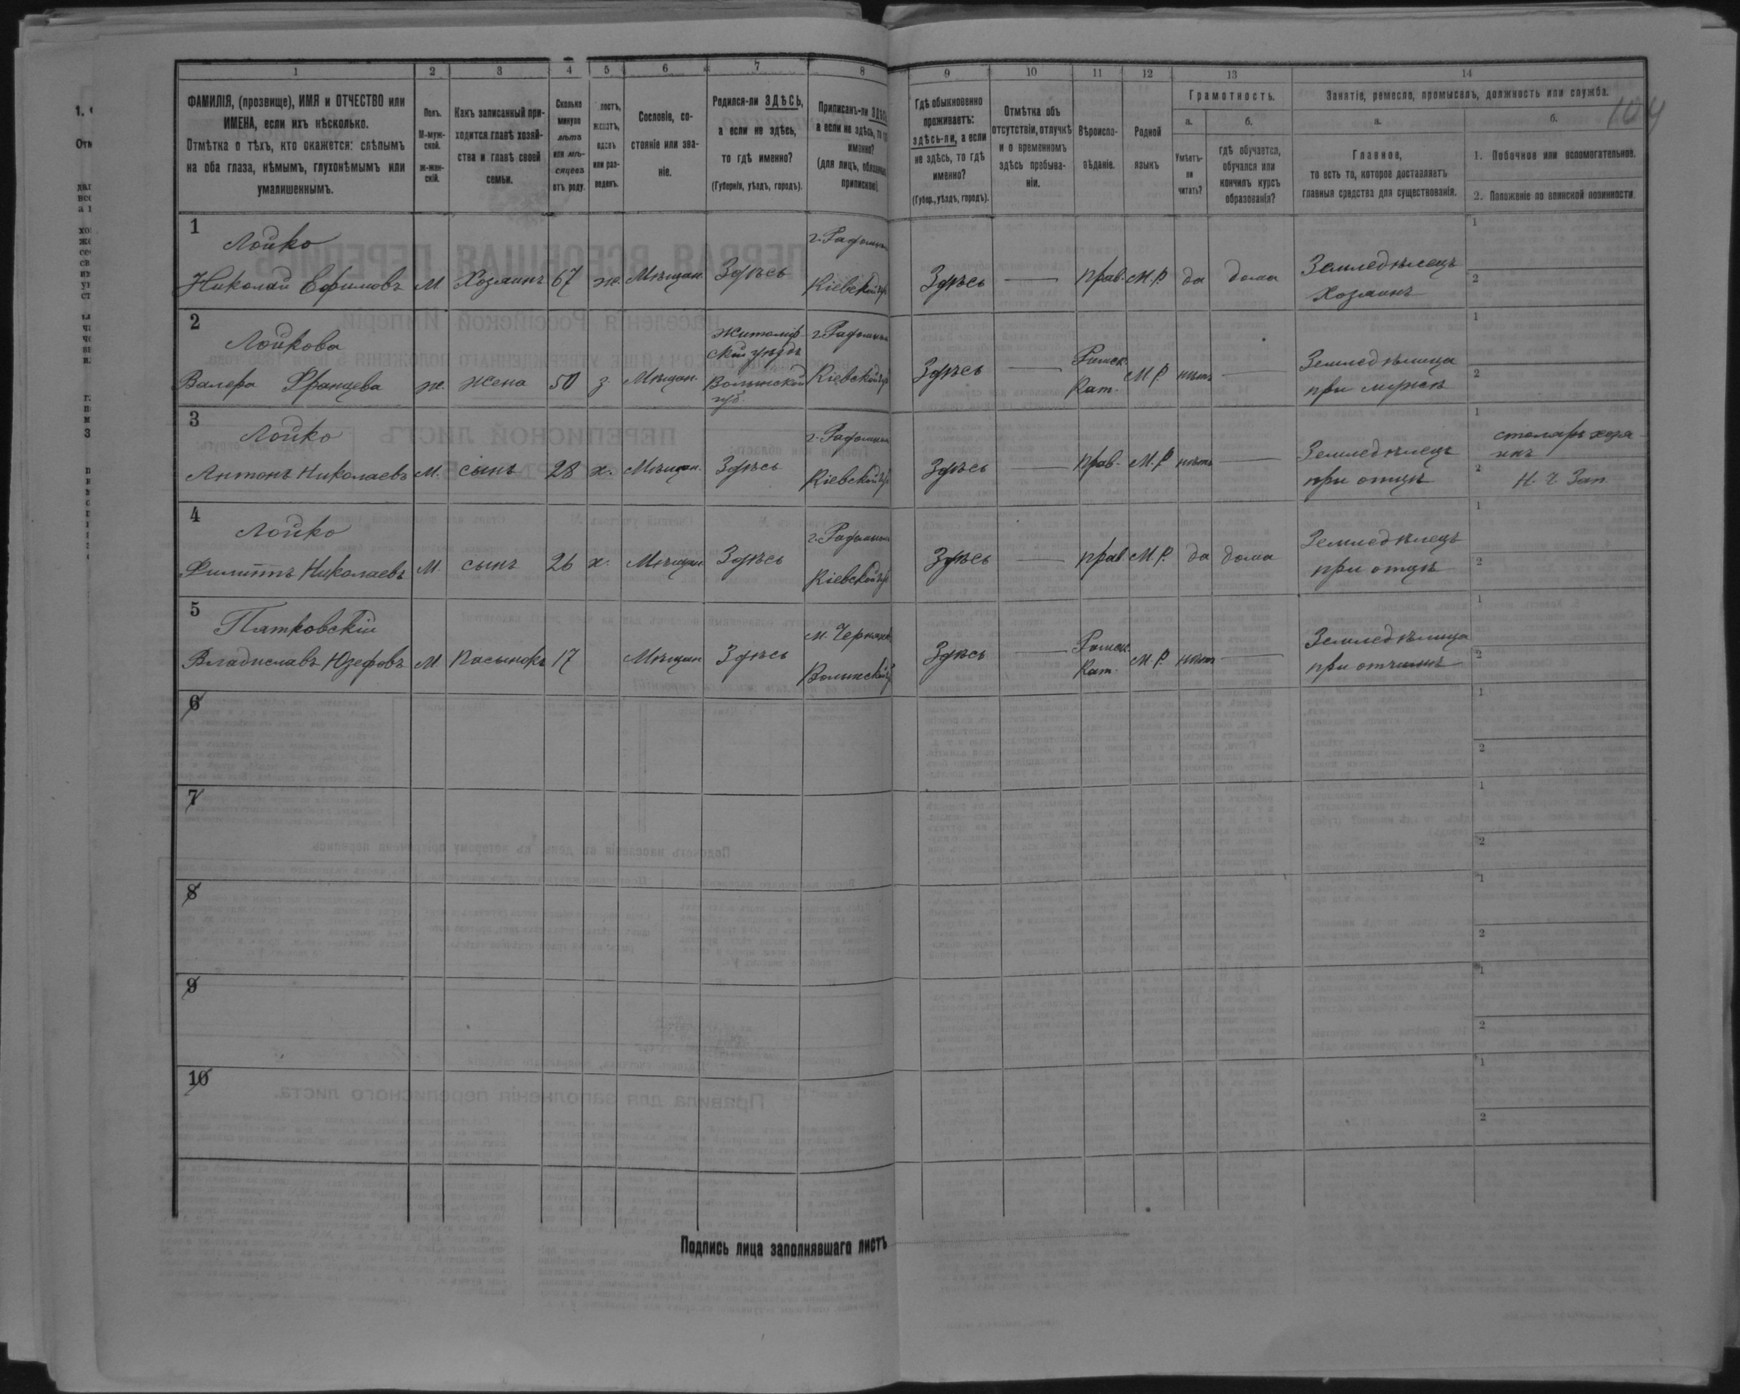 1 2 3 4 5 6 7 8 9 10 11 12 13 14
104
ФАМИЛІЯ, (прозвище), ИМЯ и ОТЧЕСТВО или
ИМЕНА, если ихъ нѣсколько.
Отмѣтка о тѣхъ, кто окажется: слѣпымъ
на оба глаза, нѣмымъ, глухонѣмымъ или
умалишеннымъ.
Полъ.
М-муж-
ской.
Ж-жен-
скій.
Какъ записанный при-
ходится главѣ хозяй-
ства и главѣ своей
семьи.
Сколько
минуло
лѣтъ
или мѣ-
сяцевъ
отъ роду.
лостъ,
женатъ,
вдовъ
или раз-
веденъ.
Сословіе, со-
стояніе или зва-
ніе.
Родился-ли ЗДѢСЬ,
а если не здѣсь,
то гдѣ именно?
(Губернія, уѣздъ, городъ).
Приписанъ-ли ЗДѢСЬ,
а если не здѣсь, то гдѣ
именно?
(для лицъ, обязанныхъ
припиской).
Гдѣ обыкновенно
проживаетъ:
здѣсь-ли, а если
не здѣсь, то гдѣ
именно?
(Губер., уѣздъ, городъ).
Отмѣтка объ
отсутствіи, отлучкѣ
и о временномъ
здѣсь пребыва-
ніи.
Вѣроиспо-
вѣданіе.
Родной
языкъ
Грамотность.
а. б.
Умѣетъ-
ли
читать?
гдѣ обучается,
обучался или
кончилъ курсъ
образованія?
Занятіе, ремесло, промыселъ, должность или служба.
а. б.
Главное,
то есть то, которое доставляетъ
главныя средства для существованія.
1. Побочное или вспомогательное.
2. Положеніе по воинской повинности.
1
Лойко
Николай Ефимовъ М Хозяинъ 67 ж. Мѣщан. Здѣсь г. Радомысль Кіевской г. Здѣсь — прав. М.Р. да дома Земледѣлецъ
хозяинъ
2
Лойкова
Валера Францева ж. жена 50 з. Мѣщан. Житомир-
скій уѣздъ
Волынской
губ. г. Радомысль Кіевской г. Здѣсь — Римск.
Кат. М.Р. нѣтъ — Земледѣлица
при мужѣ
3
Лойко
Антонъ Николаевъ М. сынъ 28 х. Мѣщан. Здѣсь г. Радомысль Кіевской г. Здѣсь — прав. М.Р. нѣтъ — Земледѣлецъ
при отцѣ столяръ хозя-
инъ
Н. Ч. Зап.
4
Лойко
Филиппъ Николаевъ М. сынъ 26 х. Мѣщан. Здѣсь г. Радомысль Кіевской г. Здѣсь — прав М.Р. да дома Земледѣлецъ
при отцѣ
5
Патковскій
Владиславъ Юзефовъ М Пасынокъ 17 Мѣщан Здѣсь м. Черняхов Волынской г. Здѣсь — Римск.
Кат. М.Р. нѣтъ — Земледѣлица
при отчимѣ
6
7
8
9
10
Подпись лица заполнявшаго листъ